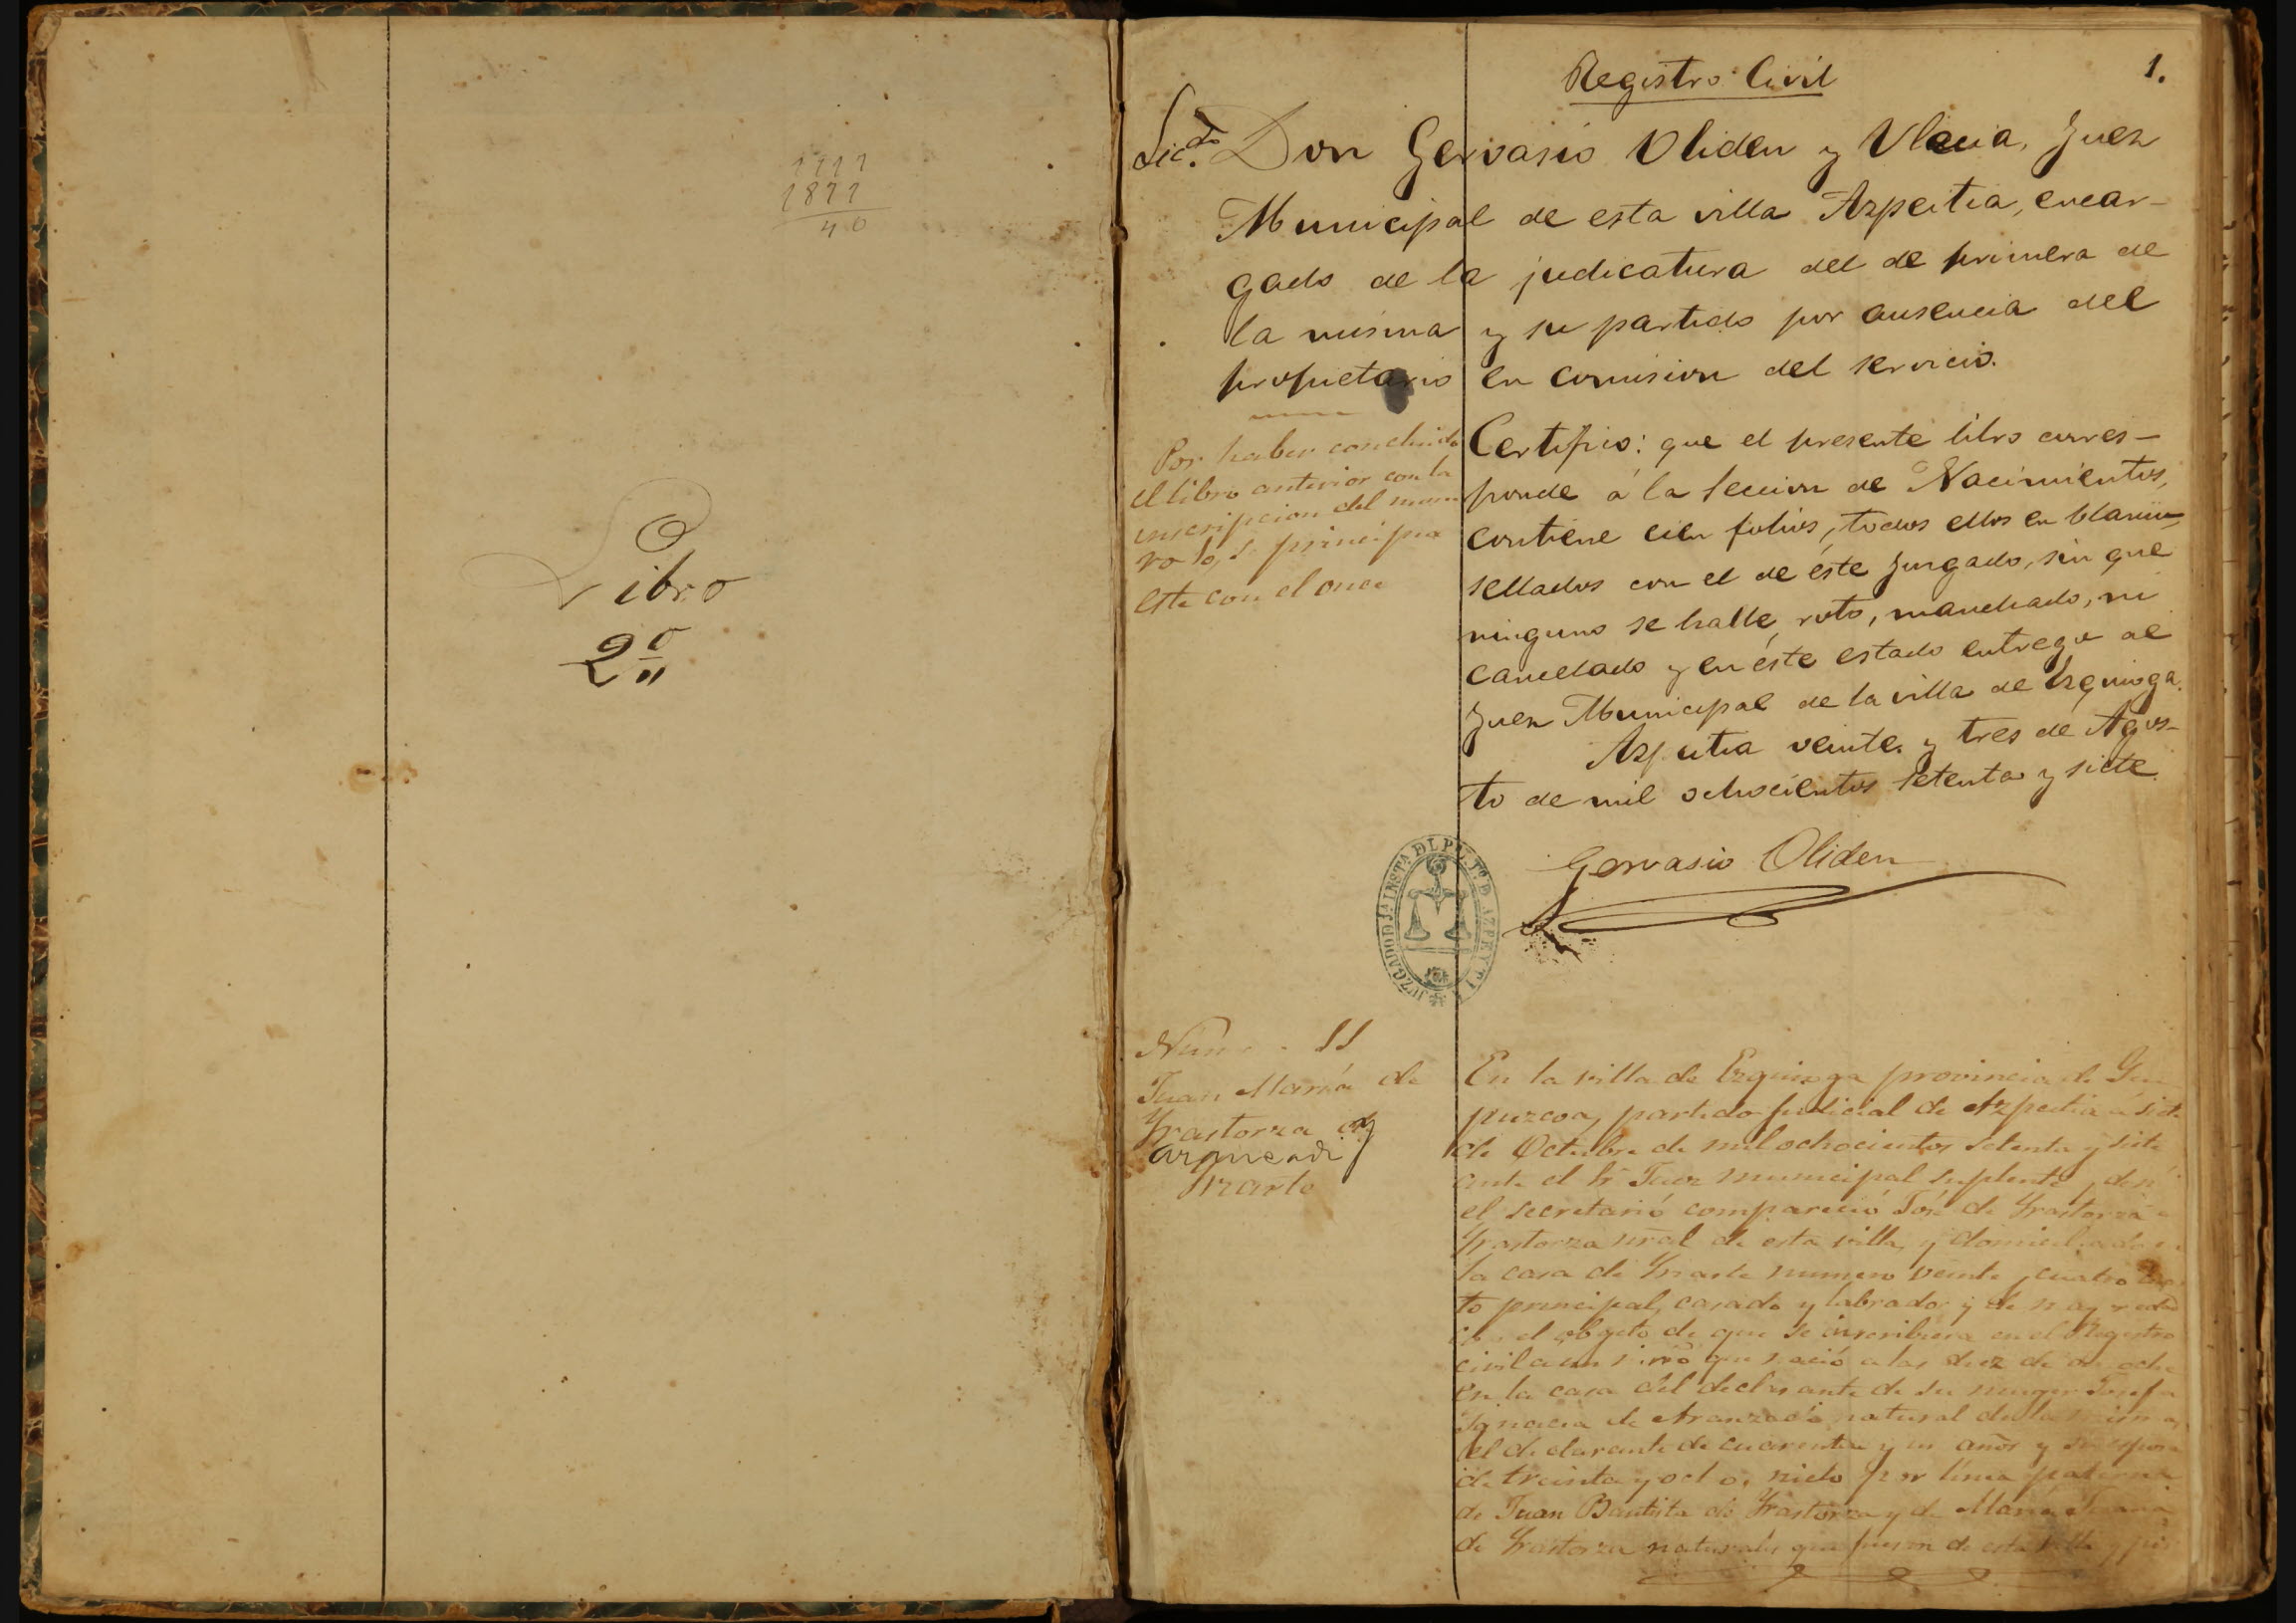 1877
40
Libro
2º
Registro Civil
1.
Lic.do Don Gervasio Oliden y Ulacia, Juez
Municipal de esta villa Azpeitia, encar-
gado de la judicatura del de primera de
la misma y su partido por ausencia del
propietario en comision del servicio.
Por haber concluido
el libro anterior con la
inscripcion del nume
ro 10, se principia
este con el once
Certifico: que el presente libro corres-
ponde á la seccion de Nacimientos,
contiene cien folios, todos ellos en blanco,
sellados con el de éste Juzgado, sin que
ninguno se halle roto, manchado, ni
cancelado y en éste estado entrego al
Juez Municipal de la villa de Ezquioga.
Azpeitia veinte y tres de Agos-
to de mil ochocientos setenta y siete.
Gervasio Oliden
JUZGADO D 1A INSTA. DL P AZPEYTIA
Num. 11
Juan María de
Yrastorza y
Aranzadi
Yriarte
En la villa de Ezquioga provincia de Gui
puzcoa, partido judicial de Azpeitia á siete
de Octubre de mil ochocientos setenta y siete
ante el Sr Juez municipal suplente, y
el secretario compareció José de Yrastorza
Yrastorza nral de esta villa, y domiciliado
la casa de Yriarte numero veinte y cuatro
to principal, casado y labrador y de mayor edad
el objeto de que se inscribiera en el Registro
civil á un niño que nació a las diez de
en la casa del declarante de su muger Josefa
Ygnacia de Aranzadi natural de la misma
el declarante de cuarenta y un años y su esposa
de treinta y ocho, nieto por línea paterna
de Juan Bautista de Yrastorza y de María Juana
de Yrastorza naturales que fueron de esta villa y